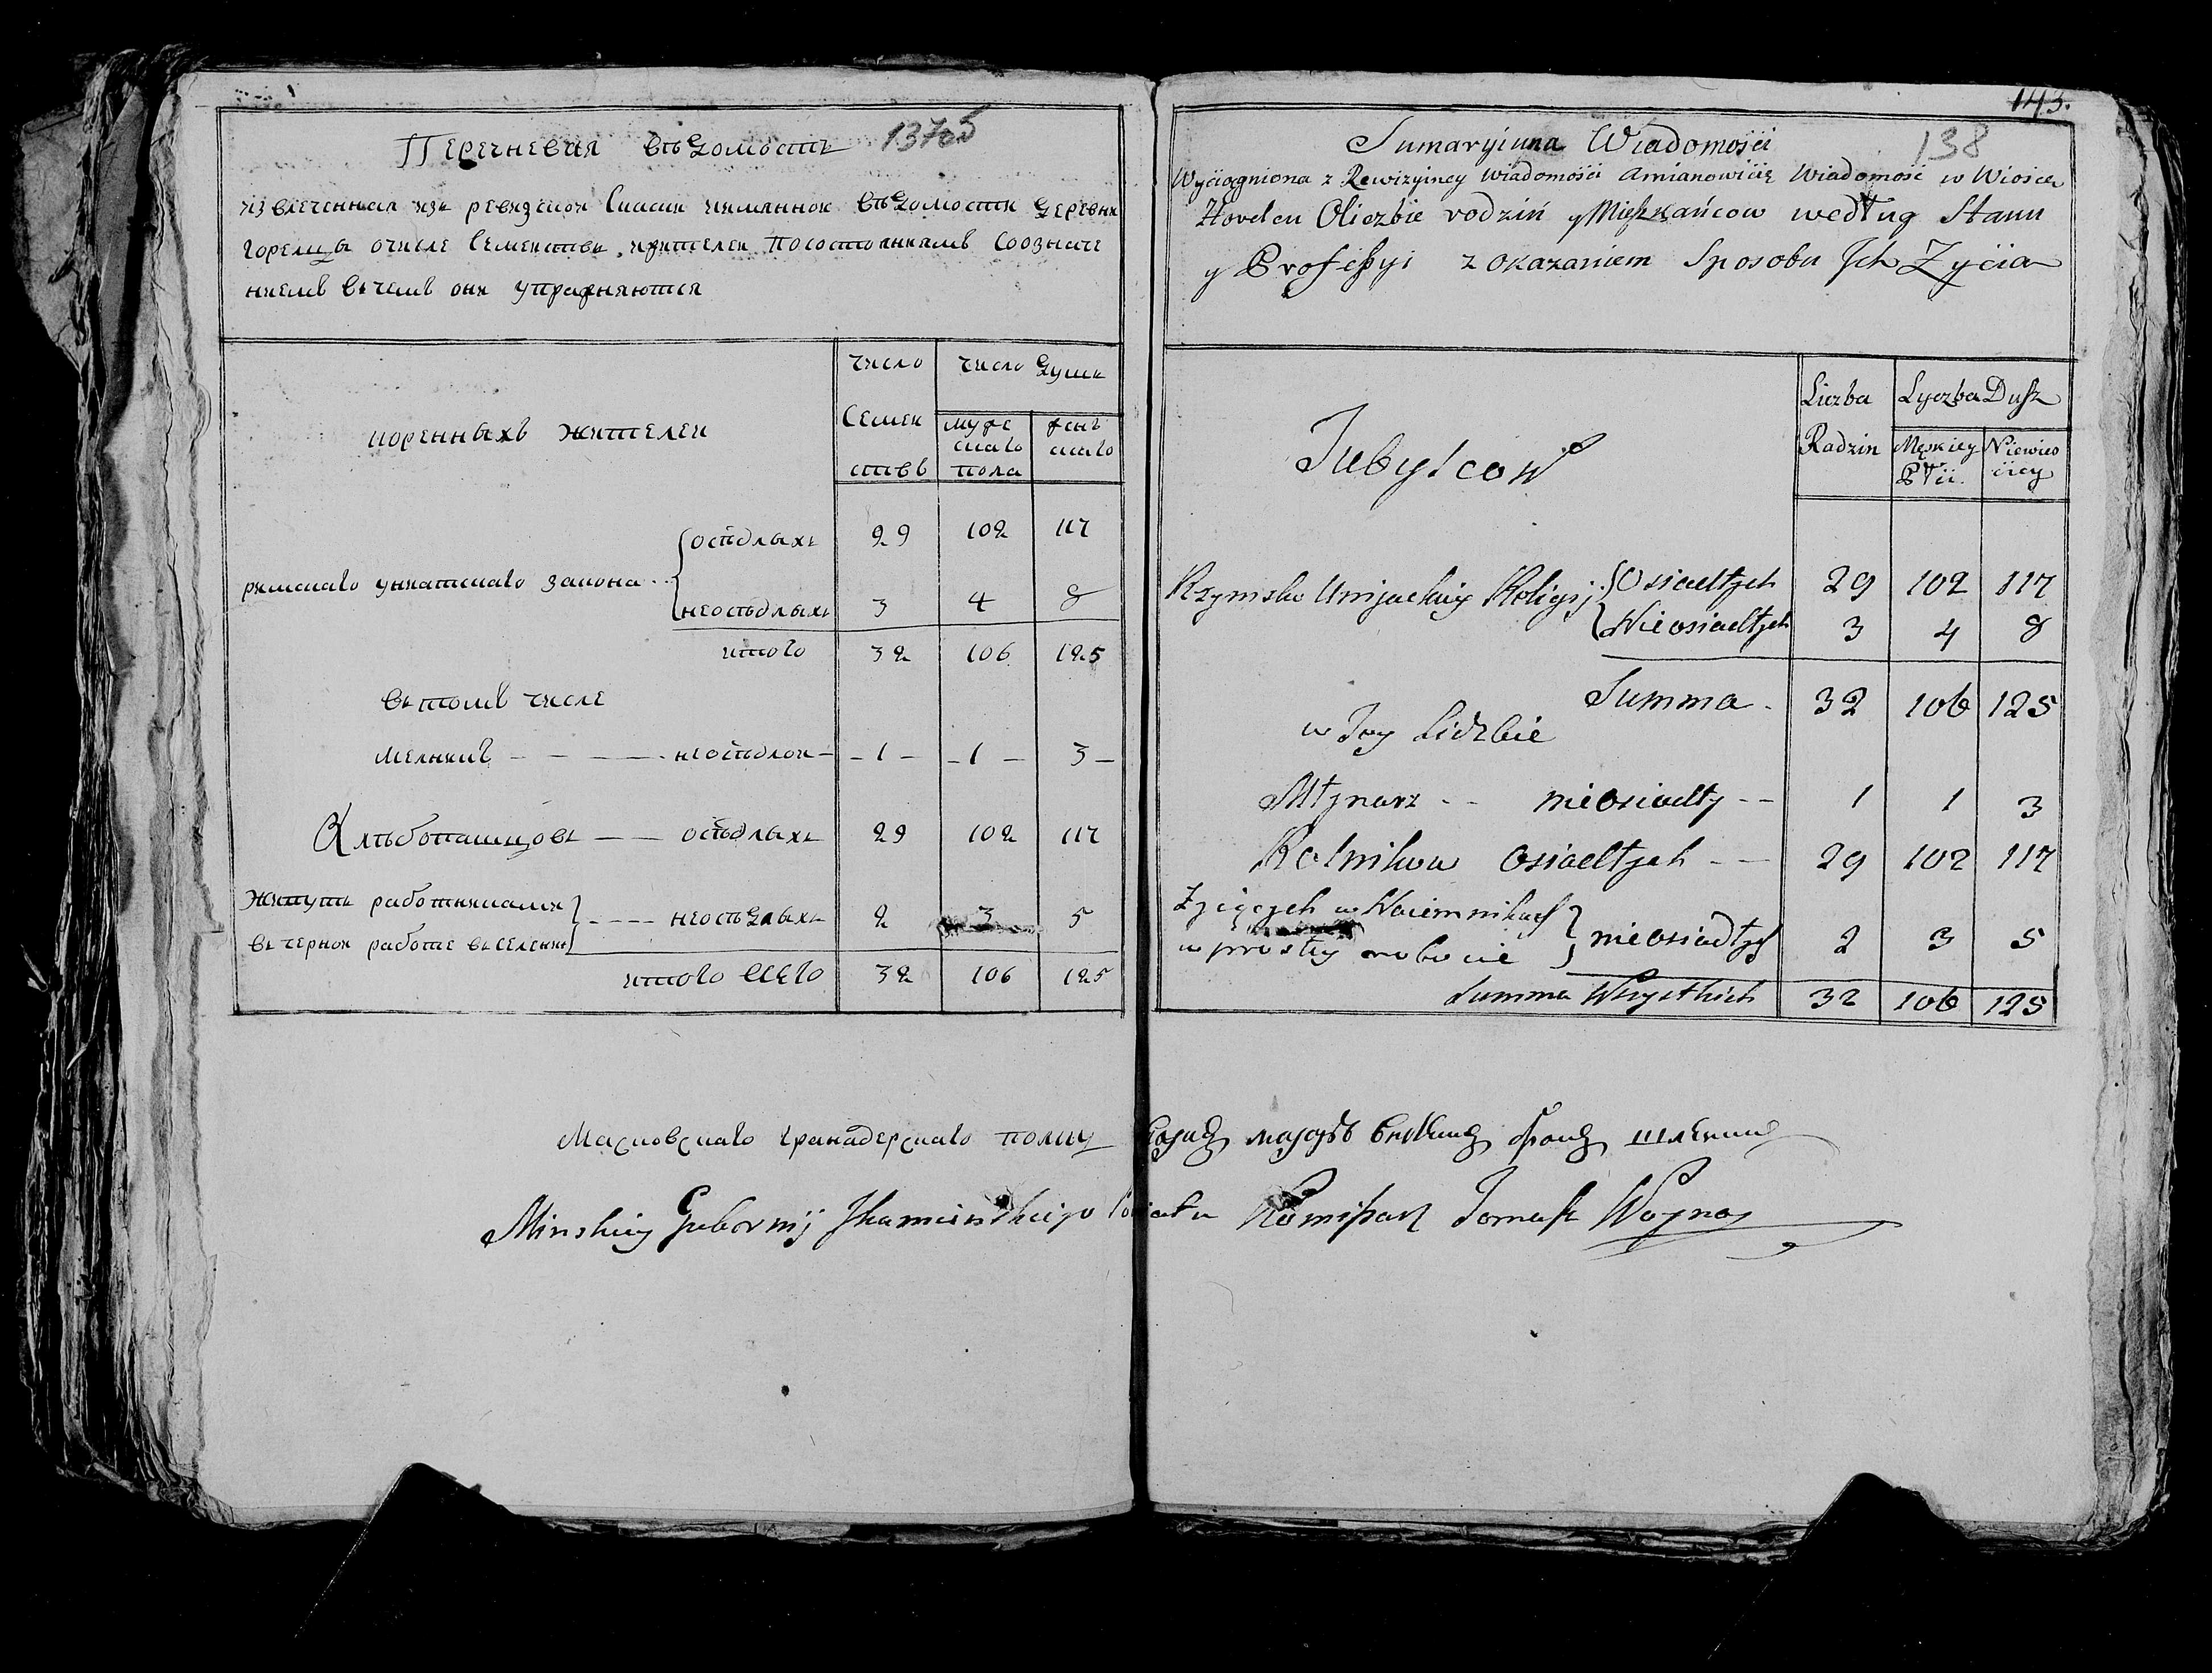 Перечневая вѣдомость
13705
извлеченная изъ ревизской Сказки имянной вѣдомости деревни
горелца очисле Семействъ, жителей посостояниямъ Соозначе
ниемъ вчемъ они упражняются
Число
Число душъ
Коренныхъ жителей
Семей
ствъ
муже
скаго
пола
женъ
скаго
римскаго униатскаго закона
осѣдлыхъ 29 102 117
неосѣдлыхъ 3 4 8
итого 32 106 125
въ томъ числе
мелникъ неосѣдлой 1 1 3
Хлѣбопашцовъ осѣдлыхъ 29 102 117
Живутъ работниками
въ черной работе въ селении неосѣдлыхъ 2 3 5
итого всего 32 106 125
143.
138
Sumaryiuna Wiadomości
Wyciągniona z Rewizyiney wiadomości a mianowicię Wiadomość w Wiosce
Horelcu Oliczbie rodziń y Mięszkańcow według Stanu
y Professyi z okazaniem Sposobu Ich Zycia
Liczba
Radzin
Lyczba Dusz
Męskiey
Płci.
Niewieś
ciey
Tubylcow
Rzymsko Unijackiey Religij
Osiadłych 29 102 117
Nieosiadłych 3 4 8
Summa 32 106 125
w Tey Liczbie
Młynarz nieosiadły 1 1 3
Rolnikow osiadłych 29 102 117
Zyjęcych w Naiemnikach
w prostey robocie nieosiadłych 2 3 5
Summa Wszystkich 32 106 125
Московскаго гранадерскаго полку
Minskiey Gubernij Ihumenskiego Powiatu Komisarz Tomasz Woyna